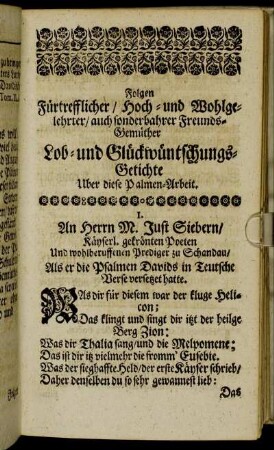 Folgen
Fürtrefflicher / Hoch- und Wohlge-
lehrter / auch sonderbahrer Freunds-
Gemüther
Lob- und Glückwüntschungs-
Getichte
Uber diese Psalmen-Arbeit.
I.
An Herrn M. Just Siebern /
Käyserl. gekrönten Poeten
Und wohlberuffenen Prediger zu Schandau /
Als er die Psalmen Davids in Teutsche
Verse versetzet hatte.
WAs dir für diesem war der kluge Heli-
con;
Das klingt und singt dir itzt der heilge
Berg Zion:
Was dir Thalia sang / und die Melpomene;
Das ist dir itz vielmehr die fromm' Eusebie.
Was der sieghaffte Held / der erste Käyser schrieb /
Daher denselben du so sehr gewannest lieb:
Das